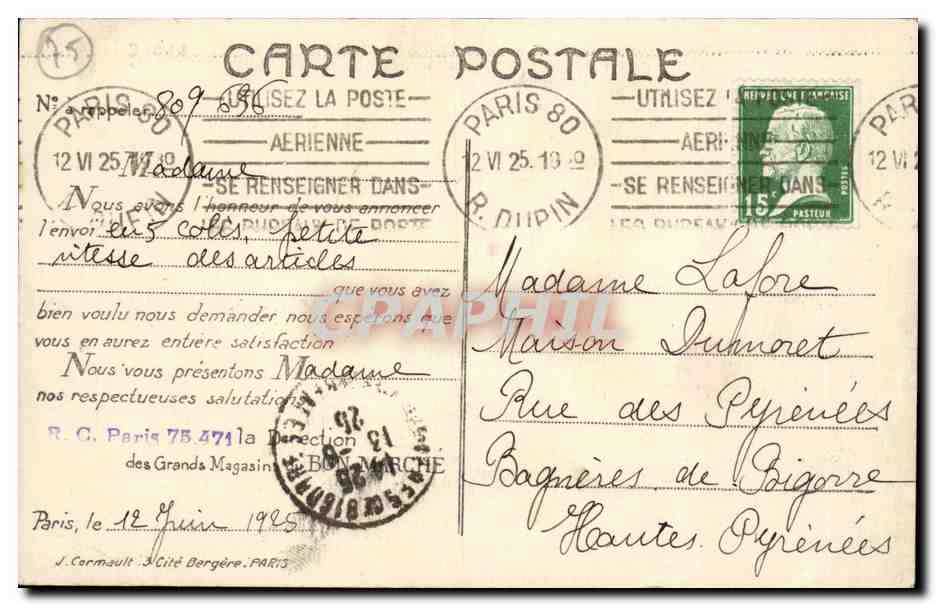 75
CARTE POSTALE
Nº à rappeler 809 696
PARIS 80
12 VI 25
R. DUPIN
UTILISEZ LA POSTE
AERIENNE
SE RENSEIGNER DANS
LES BUREAUX DE POSTE
PARIS 80
12 VI 25
R. DUPIN
UTILISEZ
AERIENNE
SE RENSEIGNER DANS
LES BUREAUX
REPUBLIQUE FRANÇAISE
POSTES
15c
PASTEUR
PARIS 80
12 VI 2
Madame
Nous avons l'honneur de vous annoncer
l'envoi en 5 colis, petite
vitesse des articles
que vous avez
bien voulu nous demander nous espérons que
vous en aurez entière satisfaction
Nous vous présentons Madame
nos respectueuses salutations
R. C. Paris 75.471 la Direction
des Grands Magasins BON MARCHÉ
Paris, le 12 Juin 1925
J. Cormault . 3 Cité Bergère . PARIS
Madame Lafore
Maison Dumoret
Rue des Pyrénées
Bagnères de Bigorre
Hautes Pyrénées
CPAPHIL